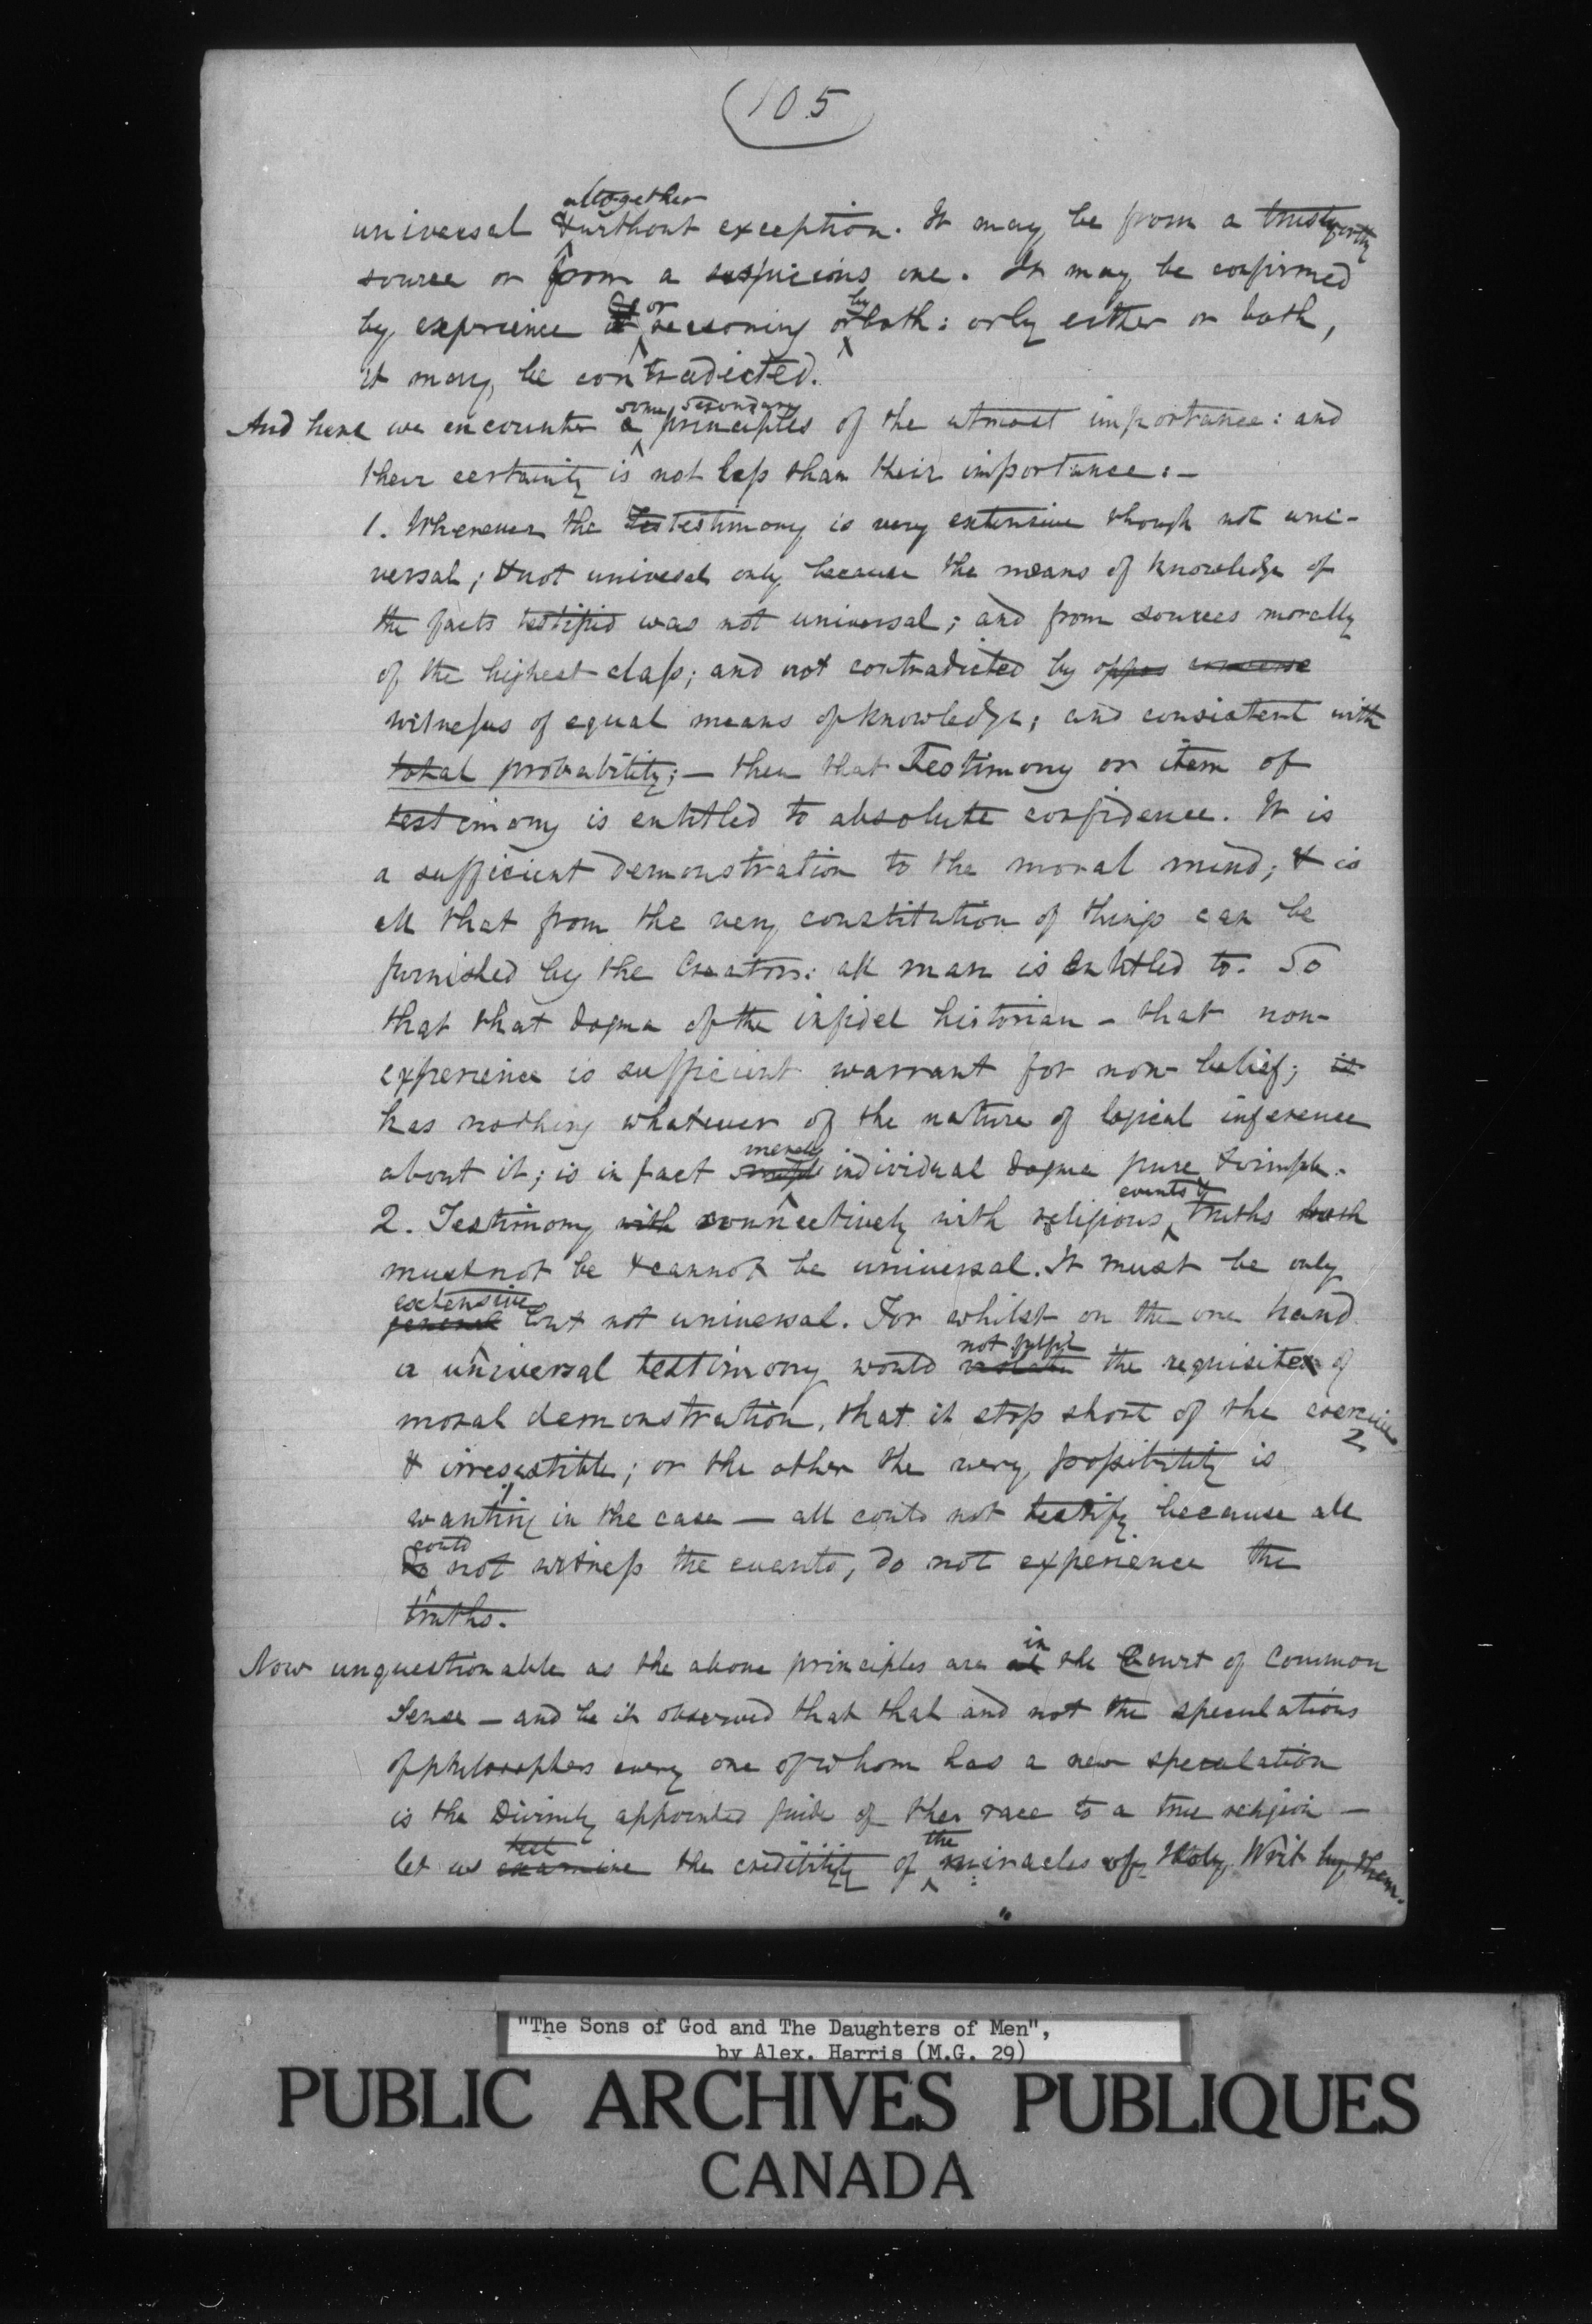 105
universal & altogether without exception. It may be from a trustworthy
source or from a suspicious one. It may be confirmed
by exprience or reasoning or by both: or by either or both,
it may be contradicted.
And here we encounter some secondary principles of the utmost importance: and
their certainty is not less than their importance:—
1. Whenever the testimony is very extensive though not uni-
versal; & not univesal only because the means of knowledge of
the facts testified was not universal; and from sources morally
of the highest class; and not contradicted by oppos
witnesses of equal means of knowledge; and consistent with
total probability;— then that Testimony or item of
testimony is entitled to absolute confidence. It is
a sufficient demonstration to the moral mind; & is
all that from the very constitution of things can be
furnished by the Creator: all man is entitled to. So
that that dogma of the infidel historian – that non-
experience is sufficient warrant for non-belief; it
has nothing whatever of the nature of logical inference
about it; is in fact merely individual dogma pure & simple.
2. Testimony with connectively with religious events & truths
must not be & cannot be universal. It must be only
general extensive but not universal. For whilst on the one hand
a universal testimony would not fulfil the requisites of
moral demonstration, that it stop short of the coercive
& irresistible; or the other the very possibility is
wanting in the case — all could not testify because all
do could not witness the events, do not experience the
truths.
Now unquestionable as the above principles are in the Court of Common
Sense – and be it observed that that and not the speculations
of philosophers every one of whom has a new speculation
is the Divinely appointed guide of the race to a true religion —
let us examine test the credibility of the miracles of Holy Writ by them.
"The Sons of God and The Daughters of Men",
by Alex. Harris (M.G. 29)
PUBLIC ARCHIVES PUBLIQUES
CANADA